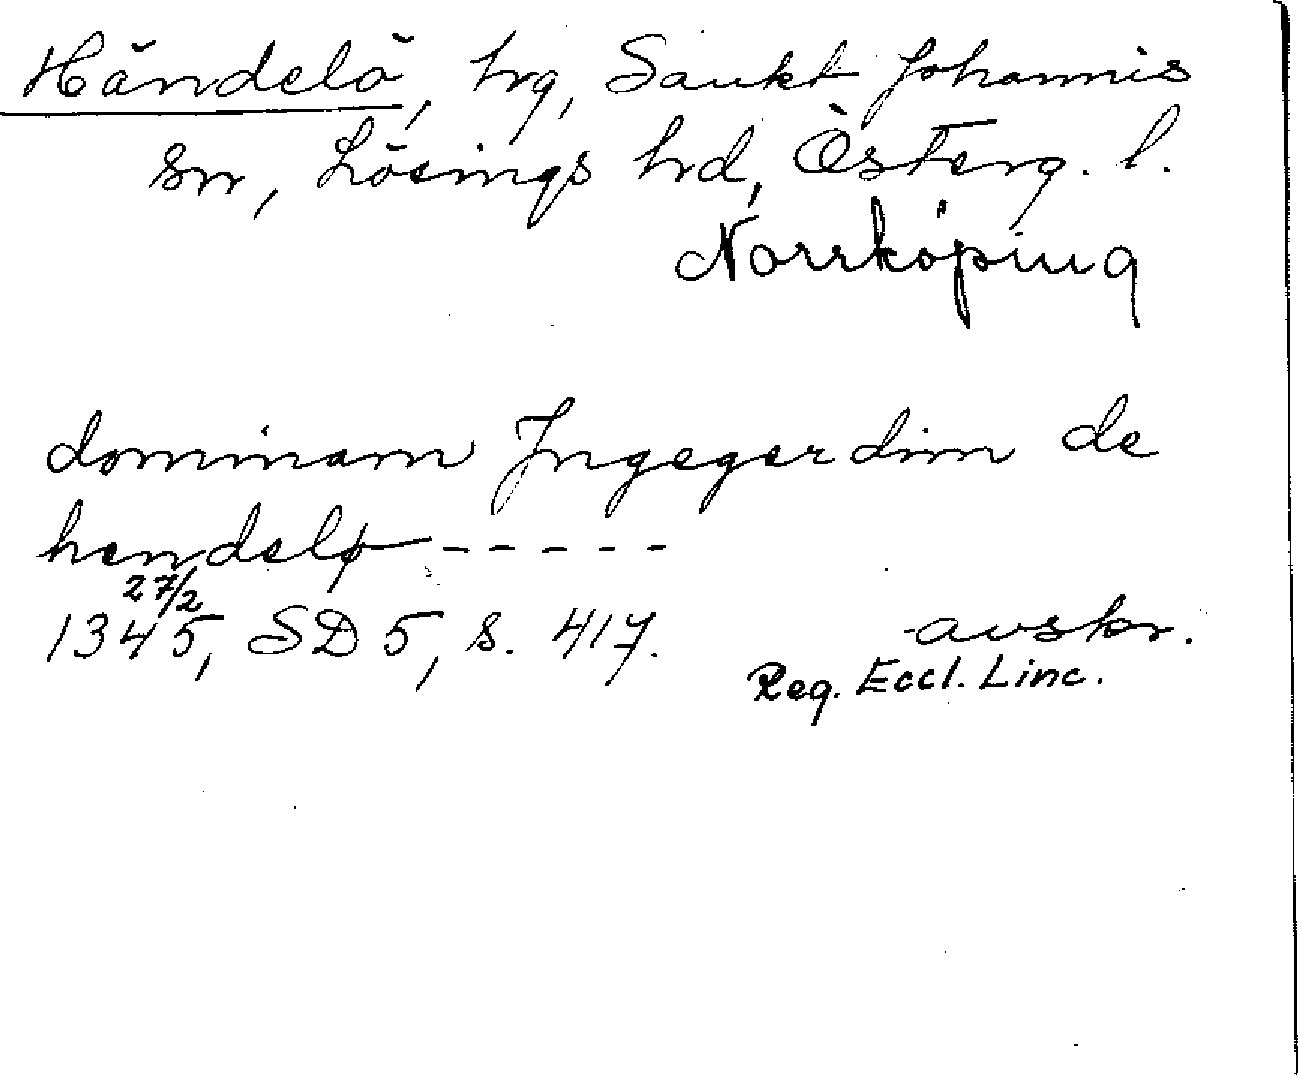 Händelö, hrg, Sankt Johannis
sn, Lösings hd, Österg. l.
Norrköping
dominam Jngegerdim de
hendelø - - - - -
27/2
1345, SD 5, s. 417. avskr.
Reg. Eccl. Linc.